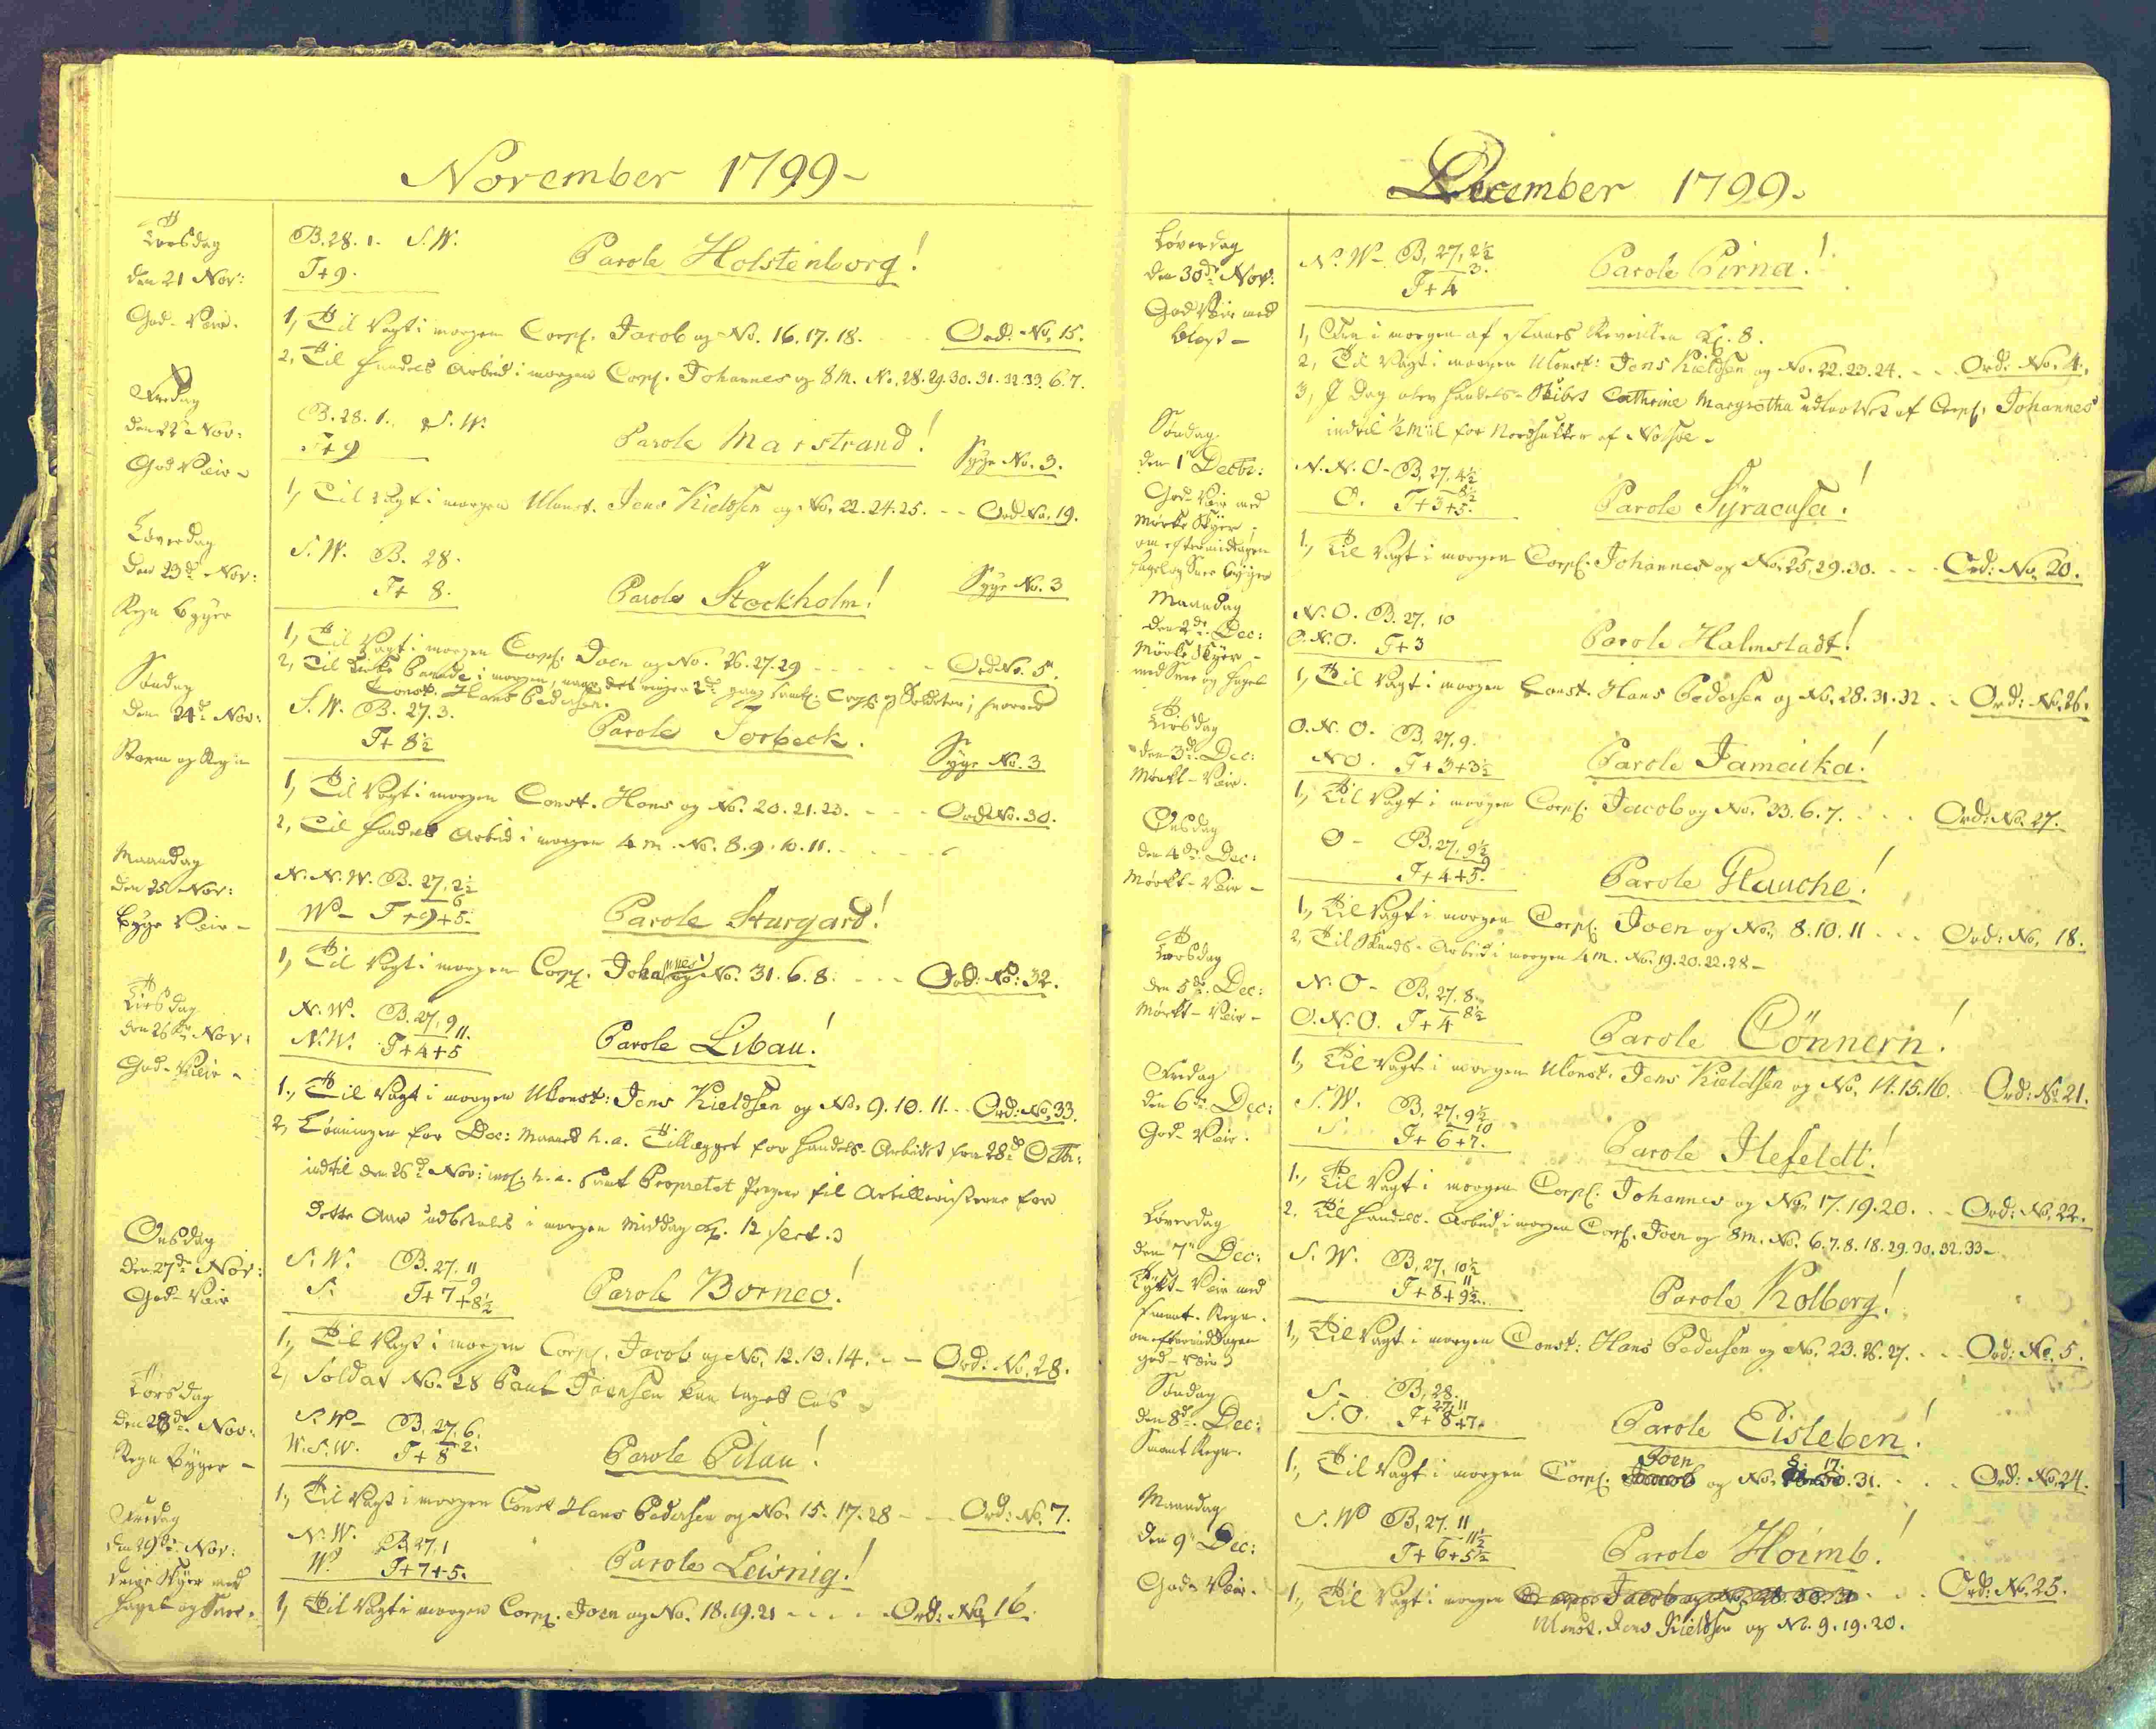 November 1799-
Torsdag
den 21 Nov:
God-Veir.
B. 28. 1. S. W.
T+9.
Parole Holstenborg!
1, Til Vagt i morgen Corpl. Jacob og No. 16. 17. 18. Ord: No. 15.
2, Til Handels Arbeid i morgen Corpl. Johannes og 8 M. No. 28. 29. 30. 31. 32. 33. 6. 7.
Fredag
den 22 Nov:
God Veir-
B. 28. 1. S. W.
T+9
Parole Marstrand!
Syge No. 3.
1, Til Vagt i morgen UConst. Jens Kieldsen og No. 22. 24. 25. -- Ord. No. 19.
Løverdag
den 23de Nov:
Regn Byger
S. W. B. 28.
T+ 8.
Parole Stockholm!
Syge No. 3
1, Til Vagt i morgen Corpl. Joen og No. 26. 27. 29 ----- Ord No. 5.
2, Til Kirke Parade i morgen, naar det ringer 2de gang samtl. Corpls og Soldater; hvorved
Const. Hans Pedersen.
Søndag
den 24de Nov:
Storm og Regn
S. W. B. 27. 3.
T+ 8½
Parole Torbeck.
Syge No. 3
1, Til Vagt i morgen Const. Hans og No. 20. 21. 23. ---- Ord No. 30.
2, Til Handels Arbeid i morgen 4 M. No. 8. 9. 10. 11.
Maandag
den 25 Nov:
Byge Veir-
N. N. W. B. 27, 2½
6
W- T+9+5.
Parole Sturgard!
1, Til Vagt i morgen Corpl. Johannes og No. 31. 6. 8. --- Ord: No: 32.
Tirsdag
den 26de Nov:
God-Veir-
N. W. B. 27, 9
11.
N. W. T+4+5
Parole Libau!
1., Til Vagt i morgen UConst: Jens Kieldsen og No. 9. 10. 11. -- Ord: No. 33.
2, Lønningen for Dec: Maaned h. a. Tillægget for Handels-Arbeidet fra 28de Octbr:
indtil den 26de Nov: h. a. samt Propretet Penger til Artilleristerne for
dette Aar udbetales i morgen Middag Kl. 12 slet.
Onsdag
den 27de Nov:
God-Veir
S. W. B. 27. 11
9
S. T+7+8½
Parole Borneo!
1., Til Vagt i morgen Corpl. Jacob og No. 12. 13. 14. -- Ord: No. 28.
2, Soldat No. 28 Paul Joensen
Torsdag
den 28de Nov:
Regn Byger-
S. W- B. 27. 6.
2.
W. S. W. T+8
Parole Pilau!
1., Til Vagt i morgen Const Hans Pedersen og No. 15. 17. 28 -- Ord: No. 7.
Fredag
den 29de Nov:
Skyer med
Hagel og Snee.
N. W. B. 27, 1
W. T+7+5.
Parole Leisnig!
1, Til Vagt i morgen Corpl. Joen og No. 18. 19. 21 ---- Ord: No. 16.
December 1799.
Løverdag
den 30de Nov:
God Veir med
Blæst-
N. W- B. 27, 2½
3.
T+4
Parole Pirna!
1, i morgen af slaaes Reveillen Kl. 8.
2, Til Vagt i morgen UConst: Jens Kieldsen og No. 22. 23. 24. -- Ord: No. 4.
3, I Dag blev Handels-Skibet Cathrine Margretha udlodset af Corpl: Johannes
indtil ½ Miil for Nordhukken af Nolsøe-
Søndag
den 1te Decbr:
God Veir med
Mørke Skyer,
om eftermidtagen
Hagel og Snee Byger
N. N. O- B. 27. 4½
8½
O. T+3+5.
Parole Syracusa!
1., Til Vagt i morgen Corpl. Johannes og No. 25, 29. 30. --- Ord: No. 20.
Maandag
den 2de Dec:
Mørke Skyer-
med Snee og Hagel
N. O. B. 27. 10
O. N. O. T+3
Parole Halmstadt!
1, Til Vagt i morgen Const. Hans Pedersen og No. 28. 31. 32 -- Ord: No. 26.
Tirsdag
den 3de Dec:
Mørkt-Veir.
O. N. O. B. 27. 9.
NO. T+3+3½
Parole Jamaika!
1., Til Vagt i morgen Corpl. Jacob og No. 33. 6. 7. Ord: No. 27.
Onsdag
den 4de Dec:
Mørkt-Veir-
O- B. 27, 9½
9
T+4+5.
Parole Glauche!
1., Til Vagt i morgen Corpl. Joen og No. 8. 10. 11 --- Ord: No. 18.
2, Til Skands-Arbeid i morgen 4 M. No. 19. 20. 22. 28-
Torsdag
den 5de Dec:
Mørkt-Veir-
N. O- B. 27. 8.
8½
O. N. O. T+4
Parole Cönnern!
1., Til Vagt i morgen UConst. Jens Kieldsen og No. 14. 15. 16. Ord: No 21.
Fredag
den 6de Dec:
God-Veir.
S. W. B. 27. 9½
10
S. T+6+7.
Parole Ilefeldt!
1., Til Vagt i morgen Corpl. Johannes og No. 17. 19. 20. -- Ord: No. 22.
2. Til Handels-Arbeid i morgen Corpl. Joen og 8 M. No. 6. 7. 8. 18. 29. 30. 32. 33-
Løverdag
den 7de Dec:
Tykt-Veir med
Smaat-Regn.
om eftermiddagen
god-Veir
S. W. B. 27, 10½
11
T+8+9½.
Parole Kolberg!
1., Til Vagt i morgen Const: Hans Pedersen og No. 23. 26. 27. -- Ord: No. 5.
Søndag
den 8de Dec:
Smaat Regn.
S- B. 28.
27. 11
S. O. T+8+7.
Parole Eisleben!
1., Til Vagt i morgen Corpl: Joen og No. 8. 17. 31. Ord: No. 24.
Maandag
den 9de Dec:
God-Veir.
S. W B. 27. 11
11½
T+6+5½
Parole Hoimb.
1., Til Vagt i morgen Ord: No. 25.
UConst. Jens Kieldsen og No. 9. 19. 20.